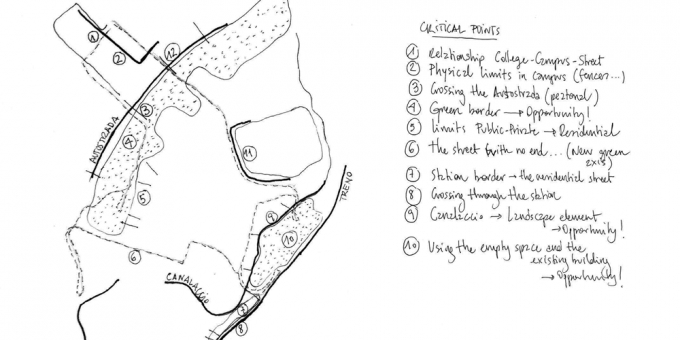 CRITICAL POINTS
① Relationship College-Campus-Street
② Physical limits in campus (fences...)
③ Crossing the Autostrada (peatonal)
④ Green border → Opportunity!
⑤ limits Public-Private → Residential
⑥ the street with no end... (New green
axis
⑦ Station border → the residential street
⑧ Crossing through the station
⑨ Canalaccio → Landscape element
→ Opportunity!
⑩ Using the empty space and the
existing building
→ Opportunity!
1
2
12
3
4
AUTOSTRADA
11
5
TRENO
9
10
6
CANALACCIO
7
8